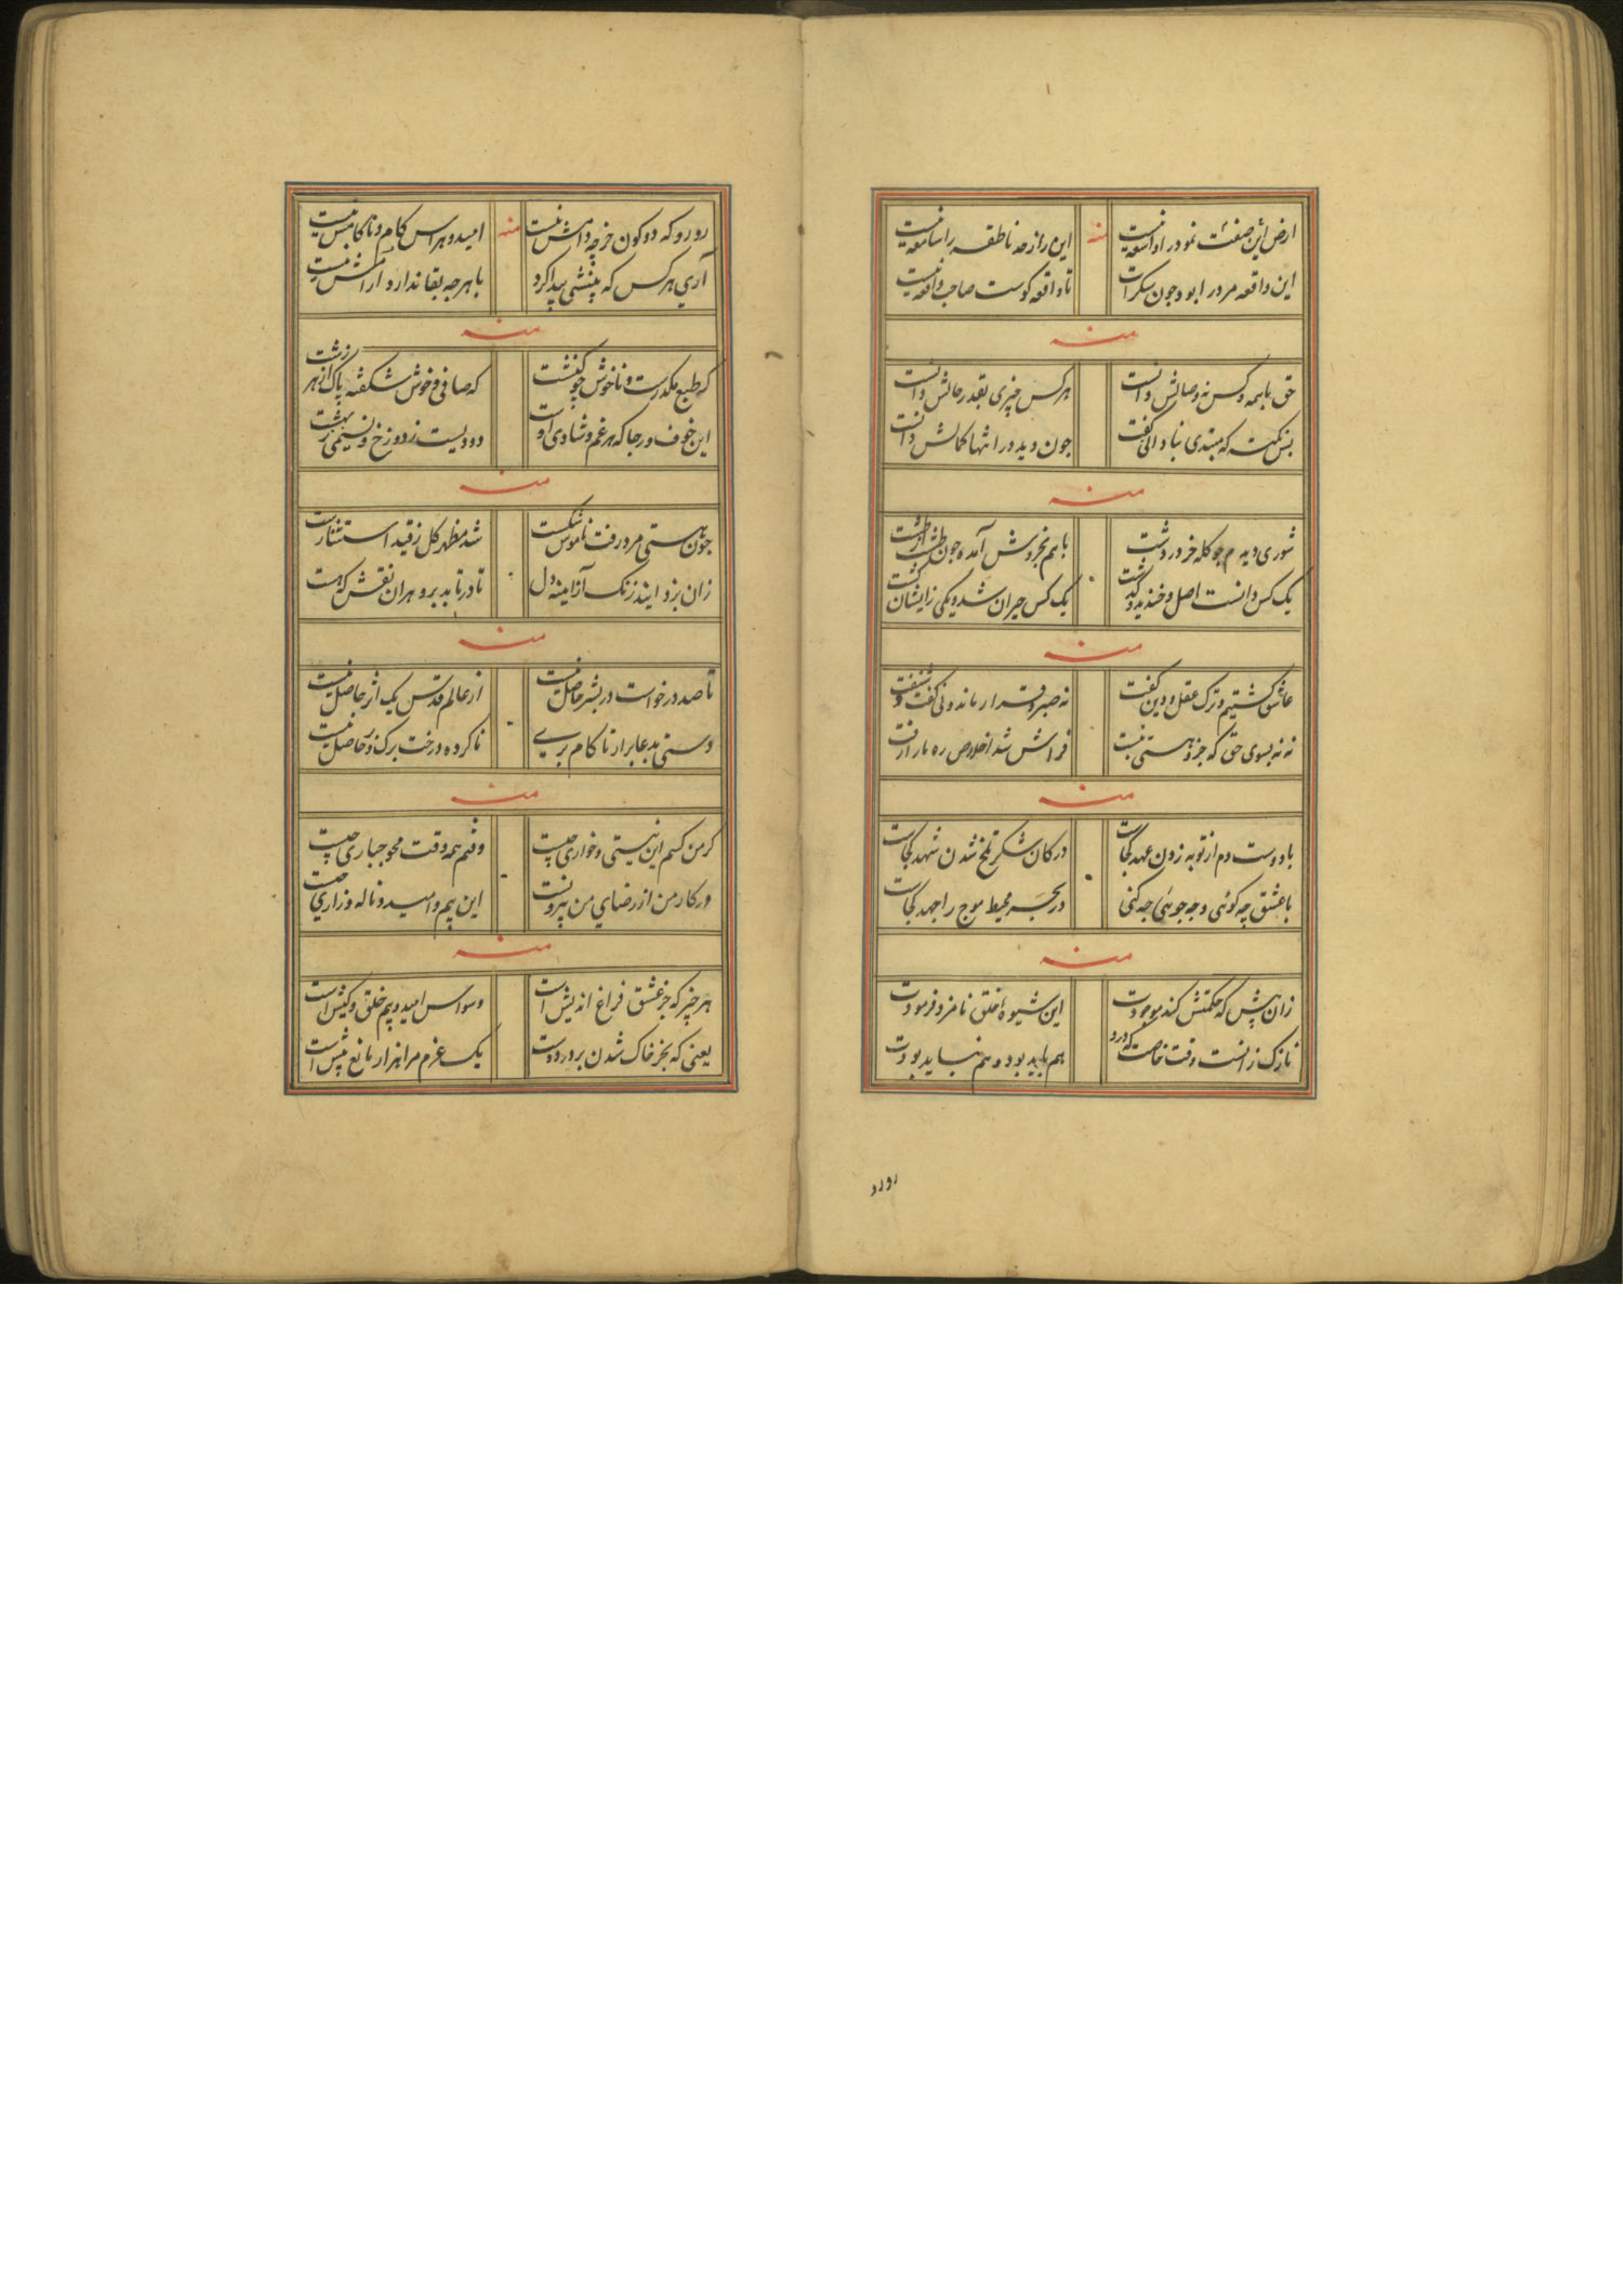 ارض این صفت نمود را واسعه نیست منه این راز چه ناطقه را سامعه نیست
این واقعه مرد را بود چون سکرات تا واقعه کوست صاحب واقعه نیست
منه
حق با همه و کس نه وصالش دانست هر کس چیزی بقدر حالش دانست
بس نکته که مبتدی بنادانی گفت چون دید در انتها کمالش دانست
منه
شوری دیدم چو کله خر در دشت با هم بخروش آمده چون طشت
یک کس دانست اصل و خندید و گذشت یک کس حیران شد و یکی زایشان گشت
منه
عاشق گشتیم و ترک عقل و دین گفت نه صبر و قرار ماند و نی گفت و شنفت
نه نه بسوی حق که جز هستی نیست فراش شد اخلاص ره ما را رفت
منه
با دوست دم از توبه زدن عهد کجاست در کان شکر تلخ شدن شهد کجاست
با عشق چه کوئی و چه جوئی چه کنی در بحر محیط موج را جهد کجاست
منه
زان پیش که حکمتش کند موجودت این شیوهٔ خلق نامزد فرمودت
نازک زانست وقت خاصت که درو هم باید بود و هم نباید بودت
رورو
رو رو که دو کون خرجه دامش نیست منه امید و هراس کام و ناکامش نیست
آری هر کس که بینشی پیدا کرد با هرچه بقا ندارد آرامش نیست
منه
که طبع مکدرست و ناخوش چو کنشت که صافی و خوش شکفته پاک از هر زشت
این خوف و رجا که هر غم و شادی اوست دودیست ز دوزخ و نسیمی ز بهشت
منه
چون هستی مرد رفت ناموس شکست شد مظهر کل ز قید استثنا رست
زان بزدایند زنگ از آینه دل تا در تابد برو هر آن نقش که هست
منه
تا صد درخواست در بشر حاصل نیست از عالم قدس یک اثر حاصل نیست
دستی بدعا برار تا کام بری ناکرده درخت برگ و بر حاصل نیست
منه
کر من کسم این نیستی و خواری چیست و نیم همه وقت محو جباری چیست
ور کار من از رضای من بیرونست این بیم و امید و ناله و زاری چیست
منه
هر چیز که جز عشق فراغ اندیش است وسواس امید و بیم خلق و کیش است
یعنی که بجز خاک شدن بر در دوست یک عزم مرا هزار مانع پیش است